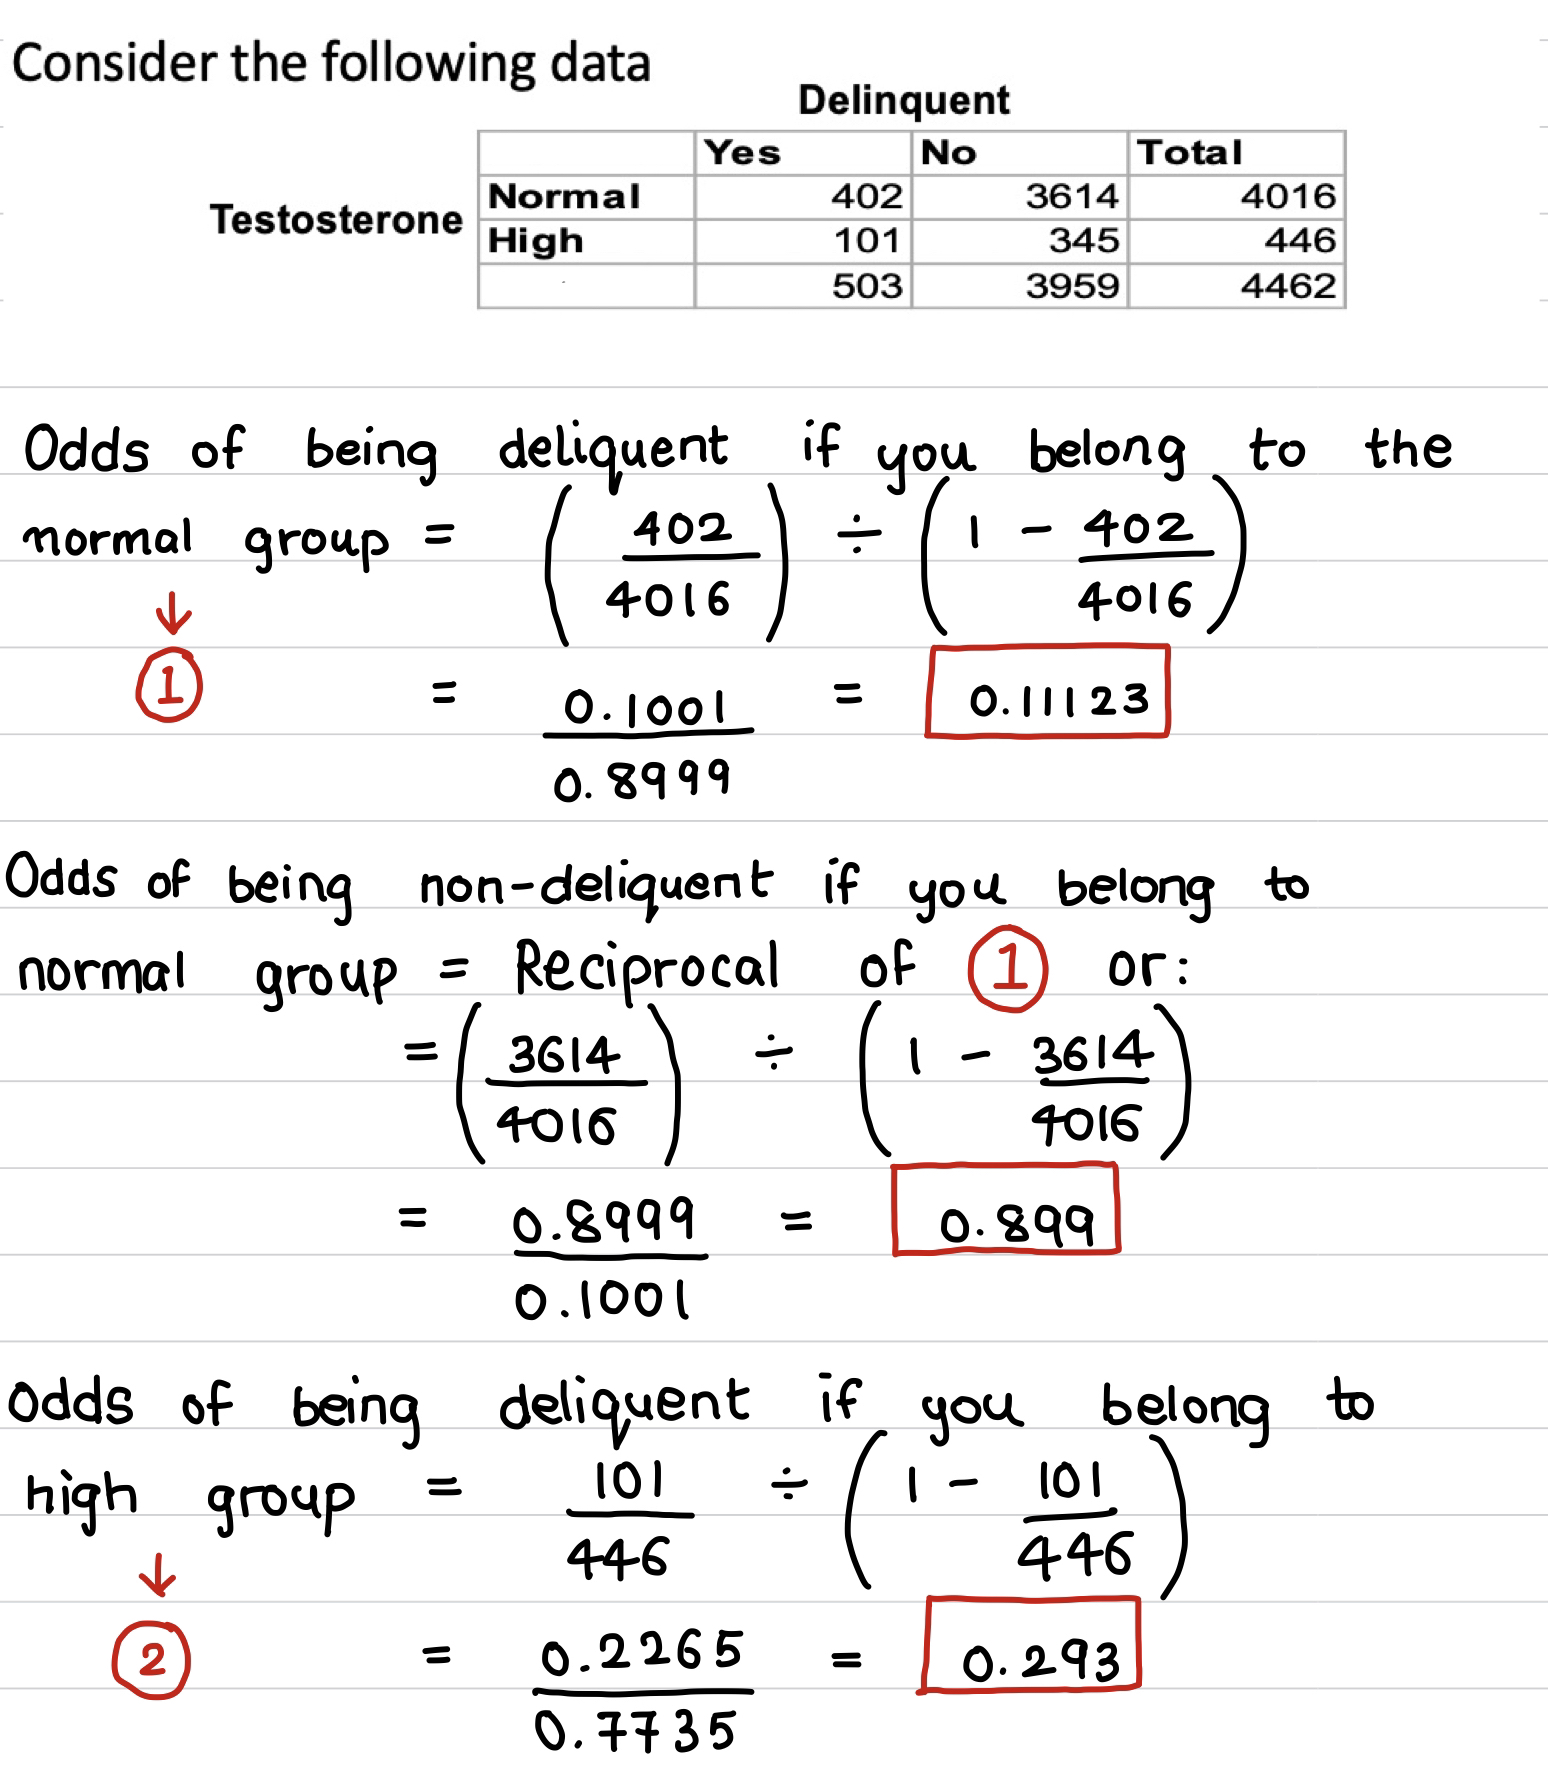 Consider the following data
Delinquent
Yes No Total
Testosterone
Normal 402 3614 4016
High 101 345 446
503 3959 4462
Odds of being deliquent if you belong to the
normal group = (402/4016) ÷ (1 - 402/4016)
↓
① = 0.1001/0.8999 = 0.11123
Odds of being non-deliquent if you belong to
normal group = Reciprocal of ① or:
= (3614/4016) ÷ (1 - 3614/4016)
= 0.8999/0.1001 = 0.899
Odds of being deliquent if you belong to
high group = 101/446 ÷ (1 - 101/446)
↓
② = 0.2265/0.7735 = 0.293